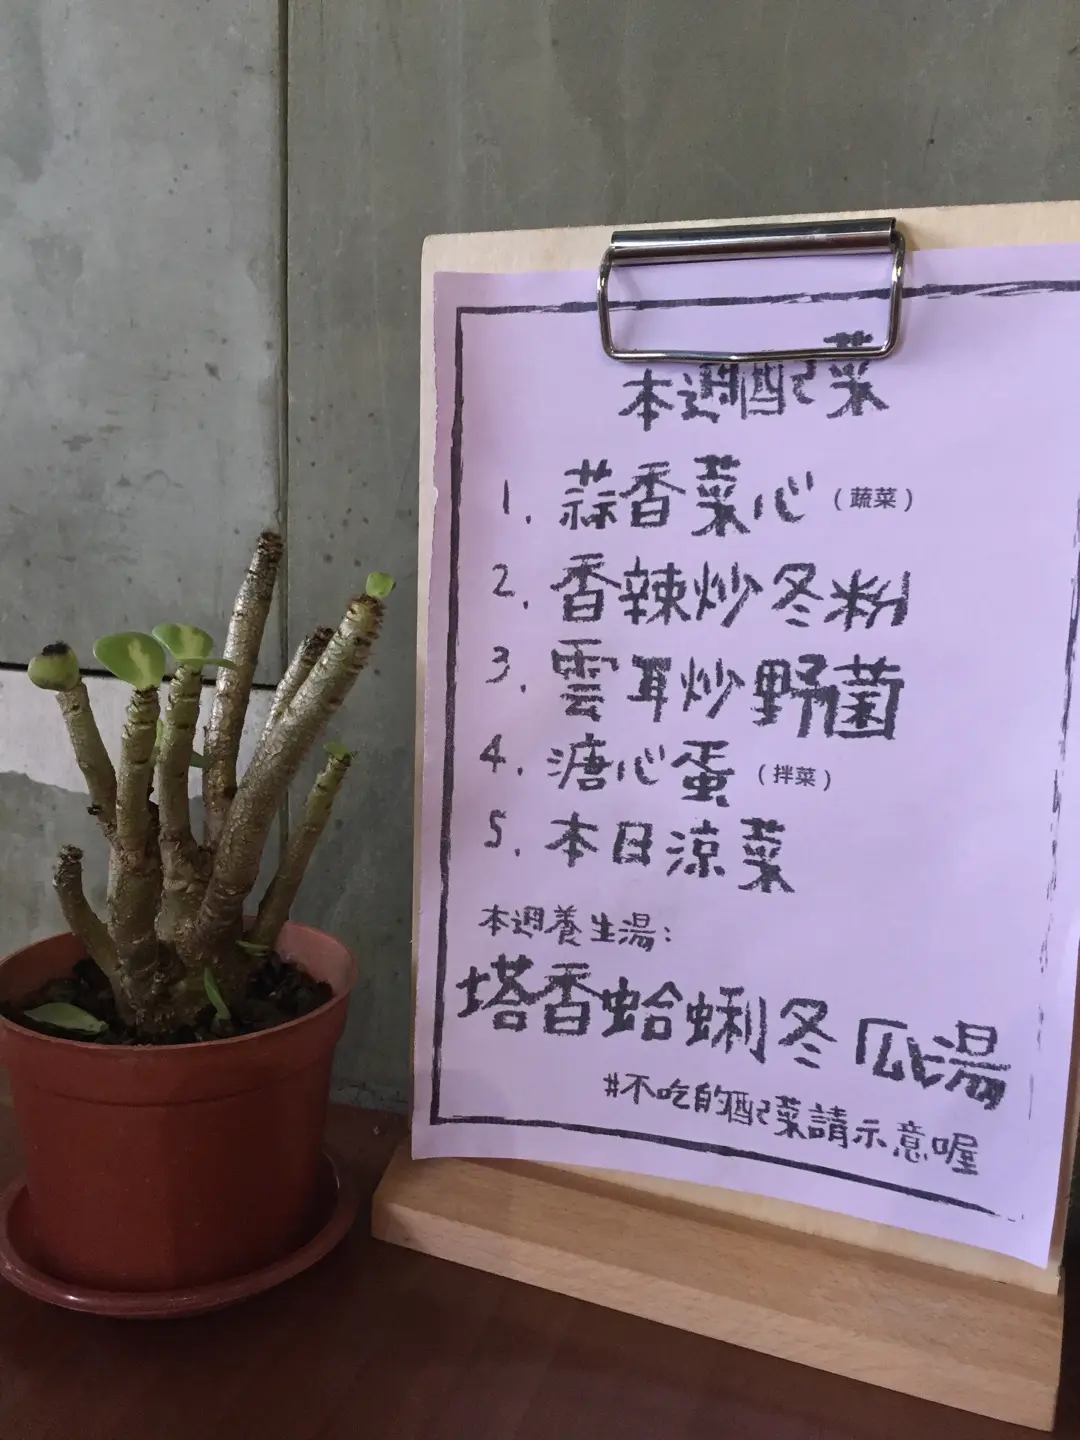 本週配菜
1. 蒜香菜心（蔬菜）
2. 香辣炒冬粉
3. 雲耳炒野菌
4. 溏心蛋（拌菜）
5. 本日涼菜
本週養生湯：
塔香蛤蜊冬瓜湯
#不吃的配菜請示意喔